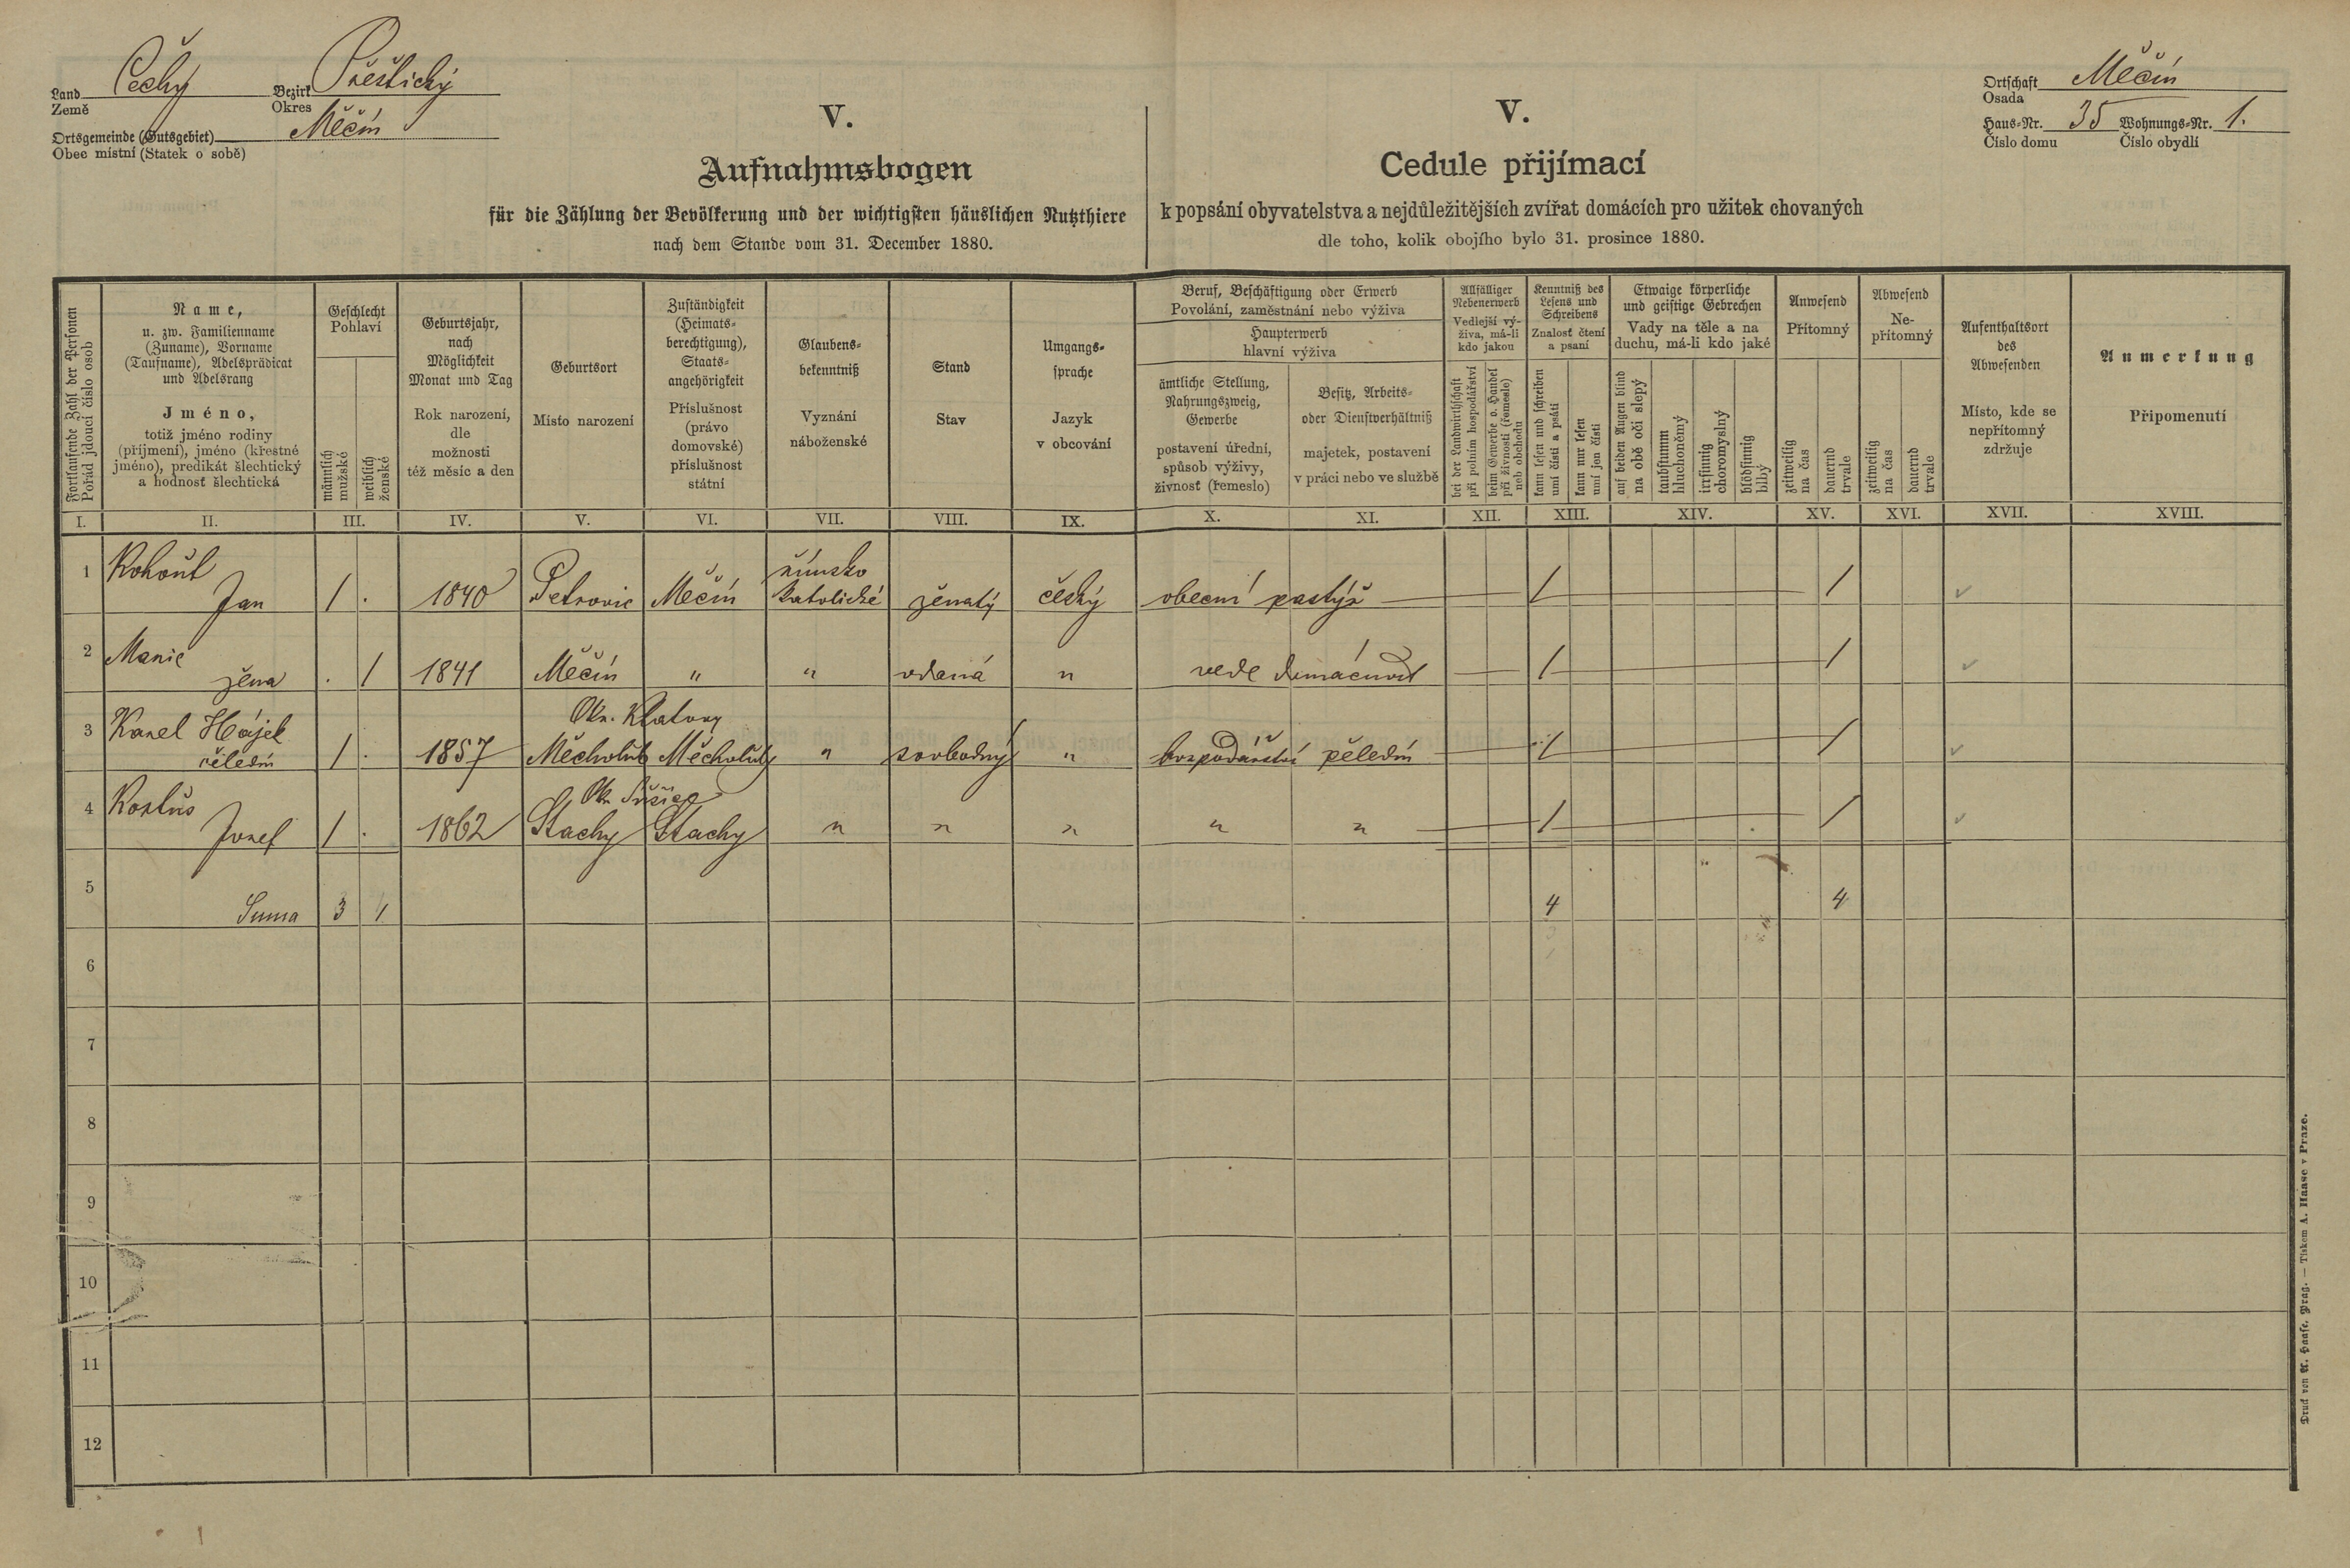 Land Čechy Bezirk Přeštický
Země Okres
Ortsgemeinde (Gutsgebiet) Měčín
Obec místní (Statek o sobě)
V.
Aufnahmsbogen
für die Zählung der Bevölkerung und der wichtigsten häuslichen Nutzthiere
nach dem Stande vom 31. December 1880.
V.
Cedule přijímací
k popsání obyvatelstva a nejdůležitějších zvířat domácích pro užitek chovaných
dle toho, kolik obojího bylo 31. prosince 1880.
Ortschaft Měčín
Osada
Haus-Nr. 35 Wohnungs-Nr. 1.
Číslo domu Číslo obydlí
Fortlaufende Zahl der Personen
Pořád jdoucí číslo osob
Name,
u. zw. Familienname
(Zuname), Vorname
(Taufname), Adelsprädicat
und Adelsrang
Jméno,
totiž jméno rodiny
(příjmení), jméno (křestné
jméno), predikát šlechtický
a hodnosť šlechtická
Geschlecht
Pohlaví
männlich
mužské
weiblich
ženské
Geburtsjahr,
nach
Möglichkeit
Monat und Tag
Rok narození,
dle
možnosti
též měsíc a den
Geburtsort
Místo narození
Zuständigkeit
(Heimats-
berechtigung),
Staats-
angehörigkeit
Příslušnost
(právo
domovské)
příslušnost
státní
Glaubens-
bekenntniß
Vyznání
náboženské
Stand
Stav
Umgangs-
sprache
Jazyk
v obcování
Beruf, Beschäftigung oder Erwerb
Povolání, zaměstnání nebo výživa
Haupterwerb
hlavní výživa
ämtliche Stellung,
Nahrungszweig,
Gewerbe
postavení úřední,
spůsob výživy,
živnosť (řemeslo)
Besitz, Arbeits-
oder Dienstverhältniß
majetek, postavení
v práci nebo ve službě
Allfälliger
Nebenerwerb
Vedlejší vý-
živa, má-li
kdo jakou
bei der Landwirthschaft
při polním hospodářství
beim Gewerbe o. Handel
při živnosti (řemeslo)
neb obchodu
Kenntniß des
Lesens und
Schreibens
Znalosť čtení
a psaní
kann lesen und schreiben
umí čísti a psáti
kann nur lesen
umí jen čísti
Etwaige körperliche
und geistige Gebrechen
Vady na těle a na
duchu, má-li kdo jaké
auf beiden Augen blind
na obě oči slepý
taubstumm
hluchoněmý
irrsinnig
choromyslný
blödsinnig
blbý
Anwesend
Přítomný
zeitweilig
na čas
dauernd
trvale
Abwesend
Ne-
přítomný
zeitweilig
na čas
dauernd
trvale
Aufenthaltsort
des
Abwesenden
Místo, kde se
nepřítomný
zdržuje
Anmerkung
Připomenutí
I. II. III. IV. V. VI. VII. VIII. IX. X. XI. XII. XIII. XIV. XV. XVI. XVII. XVIII.
1 Kohout římsko
Jan / . 1840 Petrovic Měčín katolické ženatý český obecní pastýř / /
2 Marie
žena . / 1841 Měčín " " vdaná " vede domácnost / /
3 Karel Hájek Okr. Klatovy
čeledín / . 1857 Měcholub Měcholuby " svobodný " hospodářství čeledín / /
4 Okr. Sušice
Josef / . 1862 Stachy Stachy " " " " " / /
5
Suma 3 1 4 4
6
7
8
9
10
11
12
Druck von A. Haase, Prag. — Tiskem A. Haase v Praze.